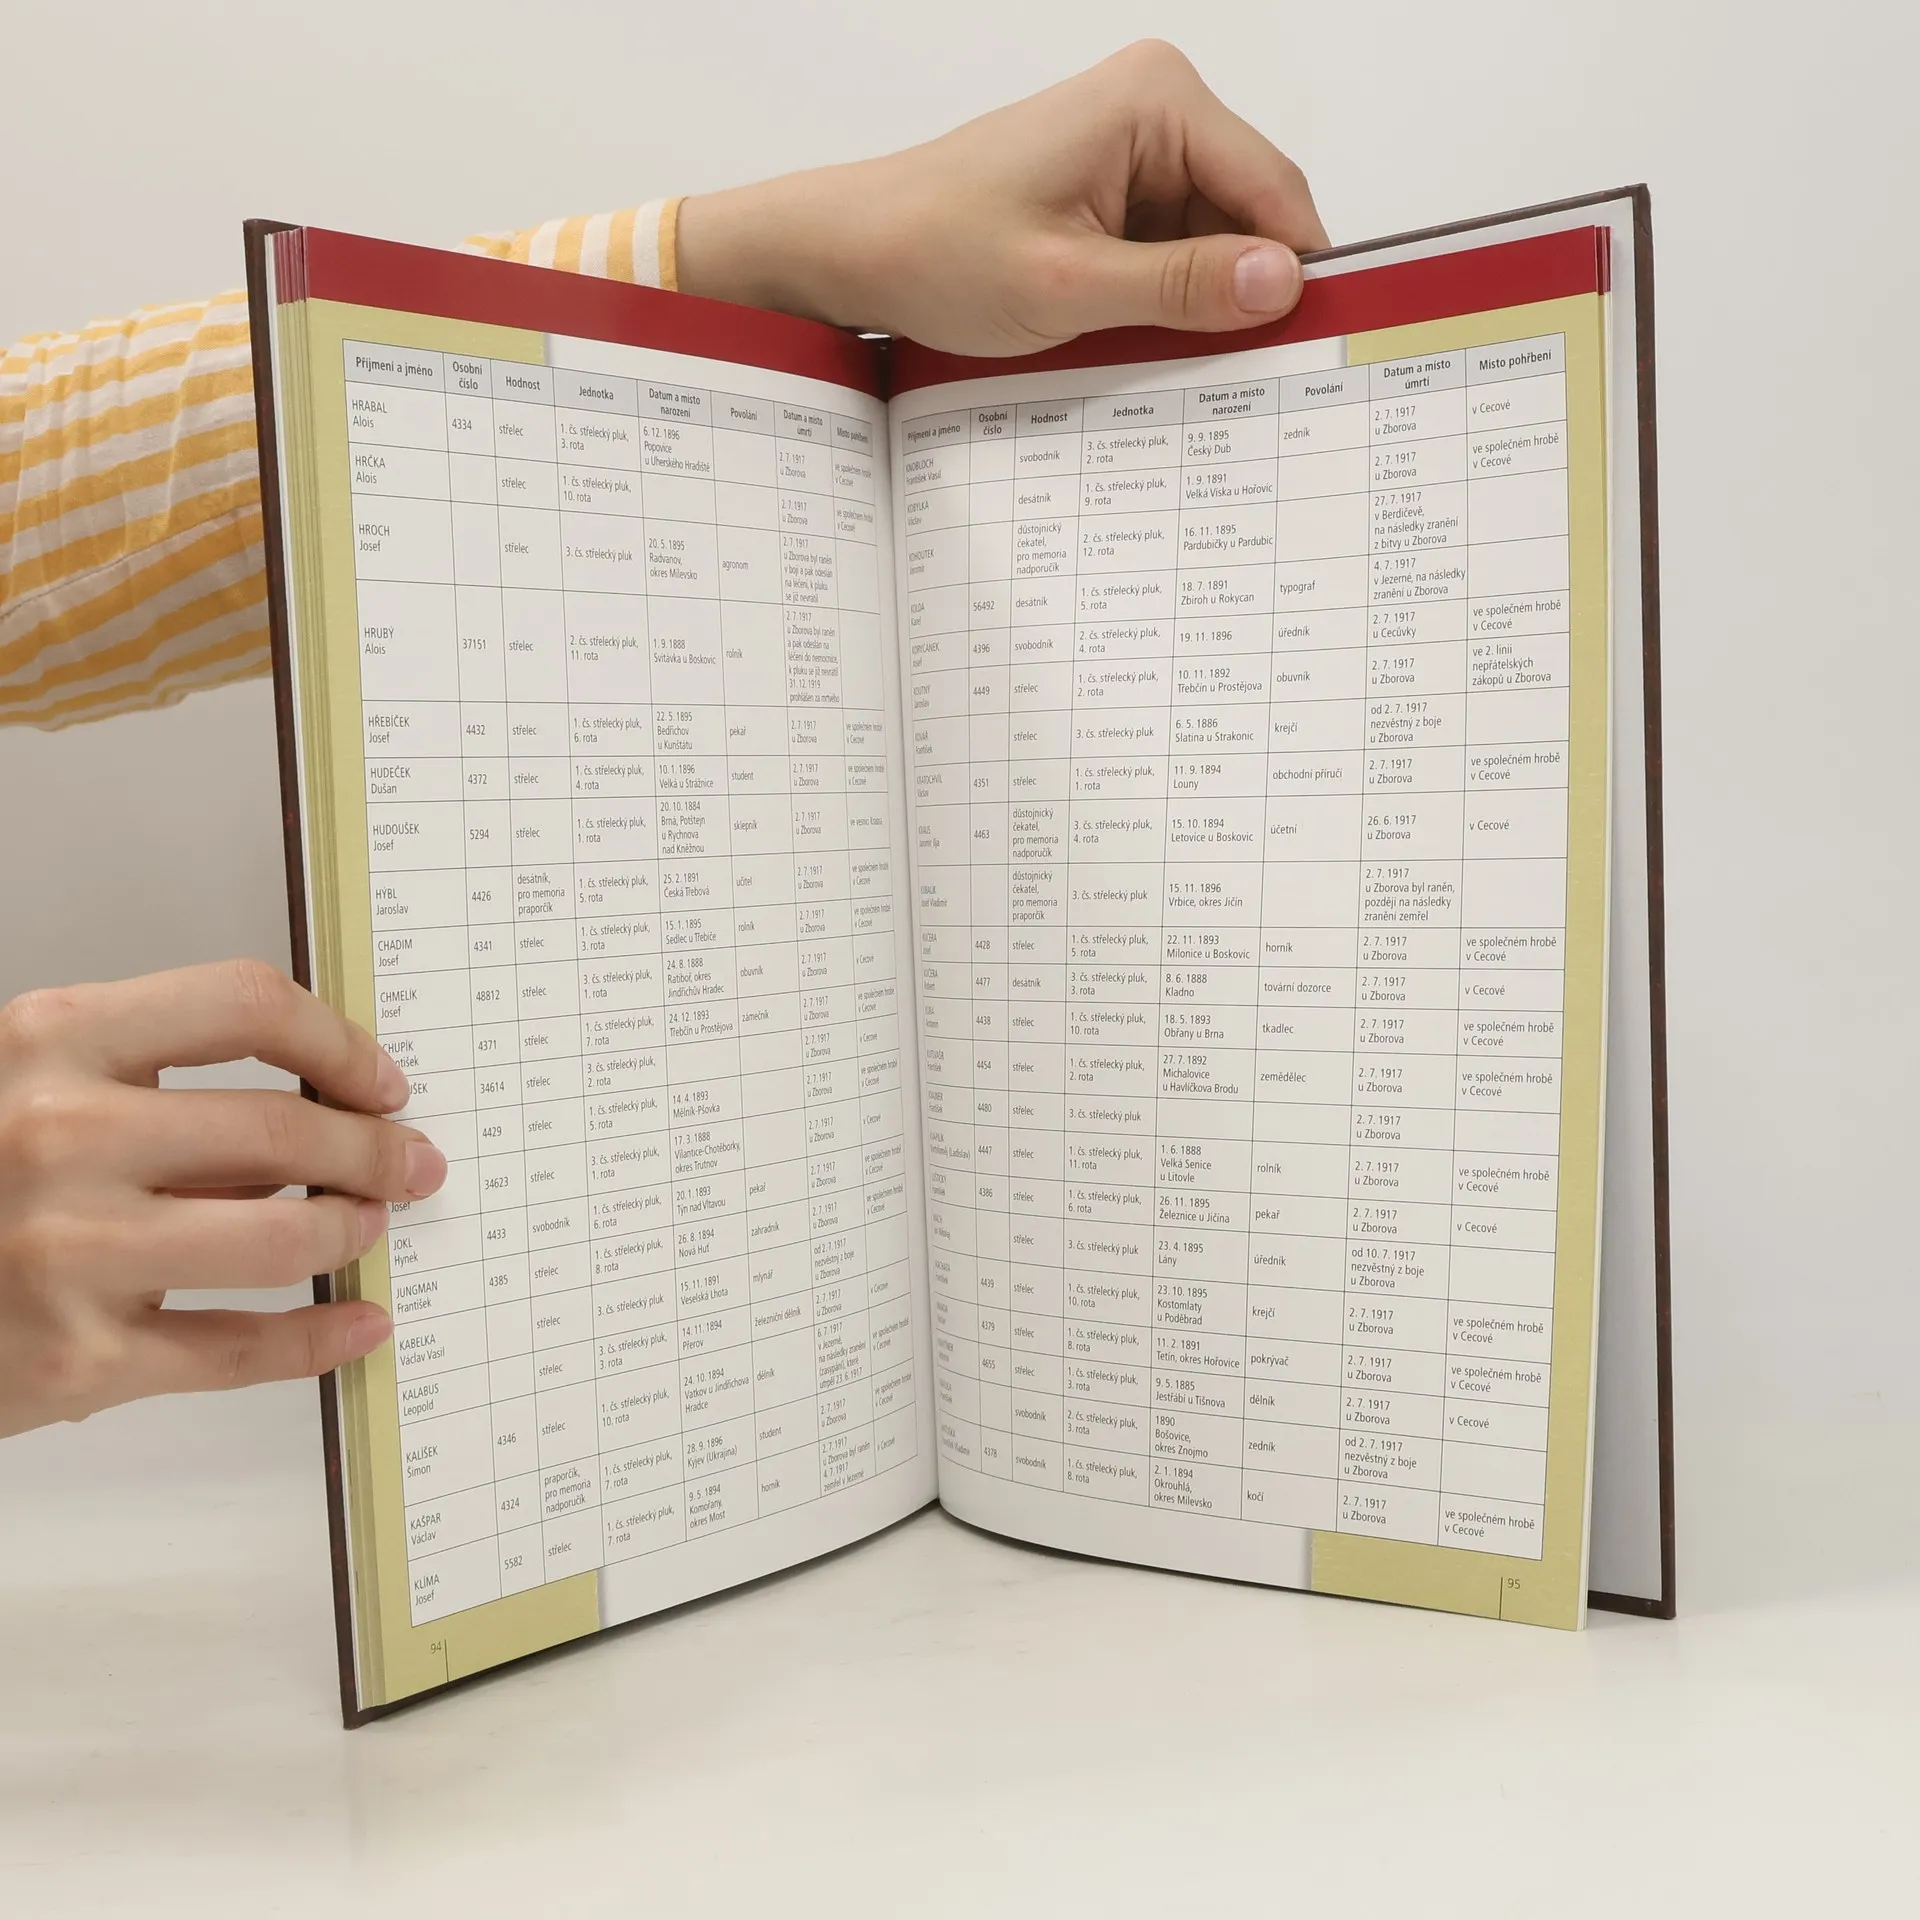 Příjmení a jméno
Osobní číslo
Hodnost
Jednotka
Datum a místo narození
Povolání
Datum a místo úmrtí
Místo pohřbení
HRABAL Alois
4334
střelec
1. čs. střelecký pluk, 3. rota
6. 12. 1896 Popovice u Uherského Hradiště
2. 7. 1917 u Zborova
ve společném hrobě v Cecové
HRČKA Alois
střelec
1. čs. střelecký pluk, 10. rota
2. 7. 1917 u Zborova
ve společném hrobě v Cecové
HROCH Josef
střelec
3. čs. střelecký pluk
20. 5. 1895 Radvanov, okres Milevsko
agronom
2. 7. 1917 u Zborova byl raněn v boji a pak odeslán na léčení, k pluku se již nevrátil
HRUBÝ Alois
37151
střelec
2. čs. střelecký pluk, 11. rota
1. 9. 1888 Svitávka u Boskovic
rolník
2. 7. 1917 u Zborova byl raněn a pak odeslán na léčení do nemocnice, k pluku se již nevrátil 31. 12. 1919 prohlášen za mrtvého
HŘEBÍČEK Josef
4432
střelec
1. čs. střelecký pluk, 6. rota
22. 5. 1895 Bedřichov u Kunštátu
pekař
2. 7. 1917 u Zborova
ve společném hrobě v Cecové
HUDEČEK Dušan
4372
střelec
1. čs. střelecký pluk, 4. rota
10. 1. 1896 Velká u Strážnice
student
2. 7. 1917 u Zborova
ve společném hrobě v Cecové
HUDOUŠEK Josef
5294
střelec
1. čs. střelecký pluk, 1. rota
20. 10. 1884 Brná, Potštejn u Rychnova nad Kněžnou
sklepník
2. 7. 1917 u Zborova
HÝBL Jaroslav
4426
desátník, pro memoria praporčík
1. čs. střelecký pluk, 5. rota
25. 2. 1891 Česká Třebová
učitel
2. 7. 1917 u Zborova
ve společném hrobě v Cecové
CHADIM Josef
4341
střelec
1. čs. střelecký pluk, 3. rota
15. 1. 1895 Sedlec u Třebíče
rolník
2. 7. 1917 u Zborova
ve společném hrobě v Cecové
CHMELÍK Josef
48812
střelec
3. čs. střelecký pluk, 1. rota
24. 8. 1888 Ratiboř, okres Jindřichův Hradec
obuvník
2. 7. 1917 u Zborova
v Cecové
CHUPÍK
4371
střelec
1. čs. střelecký pluk, 7. rota
24. 12. 1893 Třebčín u Prostějova
zámečník
2. 7. 1917 u Zborova
ve společném hrobě v Cecové
34614
střelec
3. čs. střelecký pluk, 2. rota
2. 7. 1917 u Zborova
v Cecové
4429
střelec
1. čs. střelecký pluk, 5. rota
14. 4. 1893 Mělník-Pšovka
2. 7. 1917 u Zborova
ve společném hrobě v Cecové
Josef
34623
střelec
3. čs. střelecký pluk, 1. rota
17. 3. 1888 Vilantice-Chotěborky, okres Trutnov
2. 7. 1917 u Zborova
v Cecové
JOKL Hynek
4433
svobodník
1. čs. střelecký pluk, 6. rota
20. 1. 1893 Týn nad Vltavou
pekař
2. 7. 1917 u Zborova
ve společném hrobě v Cecové
JUNGMAN František
4385
střelec
1. čs. střelecký pluk, 8. rota
26. 8. 1894 Nová Huť
zahradník
2. 7. 1917 u Zborova
ve společném hrobě v Cecové
KABELKA Václav Vasil
střelec
3. čs. střelecký pluk
15. 11. 1891 Veselská Lhota
mlynář
od 2. 7. 1917 nezvěstný z boje u Zborova
KALABUS Leopold
střelec
3. čs. střelecký pluk, 3. rota
14. 11. 1894 Přerov
železniční dělník
2. 7. 1917 u Zborova
v Cecové
KALÍŠEK Šimon
4346
střelec
1. čs. střelecký pluk, 10. rota
24. 10. 1894 Vatkov u Jindřichova Hradce
dělník
6. 7. 1917 v Jezerné, na následky zranění (zasypání), které utrpěl 23. 6. 1917
ve společném hrobě v Cecové
KAŠPAR Václav
4324
praporčík, pro memoria nadporučík
1. čs. střelecký pluk, 7. rota
28. 9. 1896 Kyjev (Ukrajina)
student
2. 7. 1917 u Zborova
ve společném hrobě v Cecové
KLÍMA Josef
5582
střelec
1. čs. střelecký pluk, 7. rota
9. 5. 1894 Komořany, okres Most
horník
2. 7. 1917 u Zborova byl raněn 4. 7. 1917 zemřel v Jezerné
v Cecové
94
Příjmení a jméno
Osobní číslo
Hodnost
Jednotka
Datum a místo narození
Povolání
Datum a místo úmrtí
Místo pohřbení
KNOBLOCH František Vasil
svobodník
3. čs. střelecký pluk, 2. rota
9. 9. 1895 Český Dub
zedník
2. 7. 1917 u Zborova
v Cecové
KOBYLKA Václav
desátník
1. čs. střelecký pluk, 9. rota
1. 9. 1891 Velká Víska u Hořovic
2. 7. 1917 u Zborova
ve společném hrobě v Cecové
KOHOUTEK Jaromír
důstojnický čekatel, pro memoria nadporučík
2. čs. střelecký pluk, 12. rota
16. 11. 1895 Pardubičky u Pardubic
27. 7. 1917 v Berdičevě, na následky zranění z bitvy u Zborova
KOLDA Karel
56492
desátník
1. čs. střelecký pluk, 5. rota
18. 7. 1891 Zbiroh u Rokycan
typograf
4. 7. 1917 v Jezerné, na následky zranění u Zborova
KORYČÁNEK Josef
4396
svobodník
2. čs. střelecký pluk, 4. rota
19. 11. 1896
úředník
2. 7. 1917 u Cecůvky
ve společném hrobě v Cecové
KOUTNÝ Jaroslav
4449
střelec
1. čs. střelecký pluk, 2. rota
10. 11. 1892 Třebčín u Prostějova
obuvník
2. 7. 1917 u Zborova
ve 2. linii nepřátelských zákopů u Zborova
KOVÁŘ František
střelec
3. čs. střelecký pluk
6. 5. 1886 Slatina u Strakonic
krejčí
od 2. 7. 1917 nezvěstný z boje u Zborova
KRATOCHVÍL Václav
4351
střelec
1. čs. střelecký pluk, 1. rota
11. 9. 1894 Louny
obchodní příručí
2. 7. 1917 u Zborova
ve společném hrobě v Cecové
KRAUS Jaromír Ilja
4463
důstojnický čekatel, pro memoria nadporučík
3. čs. střelecký pluk, 4. rota
15. 10. 1894 Letovice u Boskovic
účetní
26. 6. 1917 u Zborova
v Cecové
Josef Vladimír
důstojnický čekatel, pro memoria praporčík
3. čs. střelecký pluk
15. 11. 1896 Vrbice, okres Jičín
2. 7. 1917 u Zborova byl raněn, později na následky zranění zemřel
KUČERA Josef
4428
střelec
1. čs. střelecký pluk, 5. rota
22. 11. 1893 Milonice u Boskovic
horník
2. 7. 1917 u Zborova
ve společném hrobě v Cecové
KUČERA Robert
4477
desátník
3. čs. střelecký pluk, 3. rota
8. 6. 1888 Kladno
tovární dozorce
2. 7. 1917 u Zborova
v Cecové
4438
střelec
1. čs. střelecký pluk, 10. rota
18. 5. 1893 Obřany u Brna
tkadlec
2. 7. 1917 u Zborova
ve společném hrobě v Cecové
KUTVAŠR František
4454
střelec
1. čs. střelecký pluk, 2. rota
27. 7. 1892 Michalovice u Havlíčkova Brodu
zemědělec
2. 7. 1917 u Zborova
ve společném hrobě v Cecové
František
4480
střelec
3. čs. střelecký pluk
2. 7. 1917 u Zborova
4447
střelec
1. čs. střelecký pluk, 11. rota
1. 6. 1888 Velká Senice u Litovle
rolník
2. 7. 1917 u Zborova
ve společném hrobě v Cecové
4386
střelec
1. čs. střelecký pluk, 6. rota
26. 11. 1895 Železnice u Jičína
pekař
2. 7. 1917 u Zborova
v Cecové
střelec
3. čs. střelecký pluk
23. 4. 1895 Lány
úředník
od 10. 7. 1917 nezvěstný z boje u Zborova
4439
střelec
1. čs. střelecký pluk, 10. rota
23. 10. 1895 Kostomlaty u Poděbrad
krejčí
2. 7. 1917 u Zborova
ve společném hrobě v Cecové
4379
střelec
1. čs. střelecký pluk, 8. rota
11. 2. 1891 Tetín, okres Hořovice
pokrývač
2. 7. 1917 u Zborova
ve společném hrobě v Cecové
4655
střelec
1. čs. střelecký pluk, 3. rota
9. 5. 1885 Jestřábí u Tišnova
dělník
2. 7. 1917 u Zborova
v Cecové
svobodník
2. čs. střelecký pluk, 3. rota
1890 Bošovice, okres Znojmo
zedník
od 2. 7. 1917 nezvěstný z boje u Zborova
4378
svobodník
1. čs. střelecký pluk, 8. rota
2. 1. 1894 Okrouhlá, okres Milevsko
kočí
2. 7. 1917 u Zborova
ve společném hrobě v Cecové
95